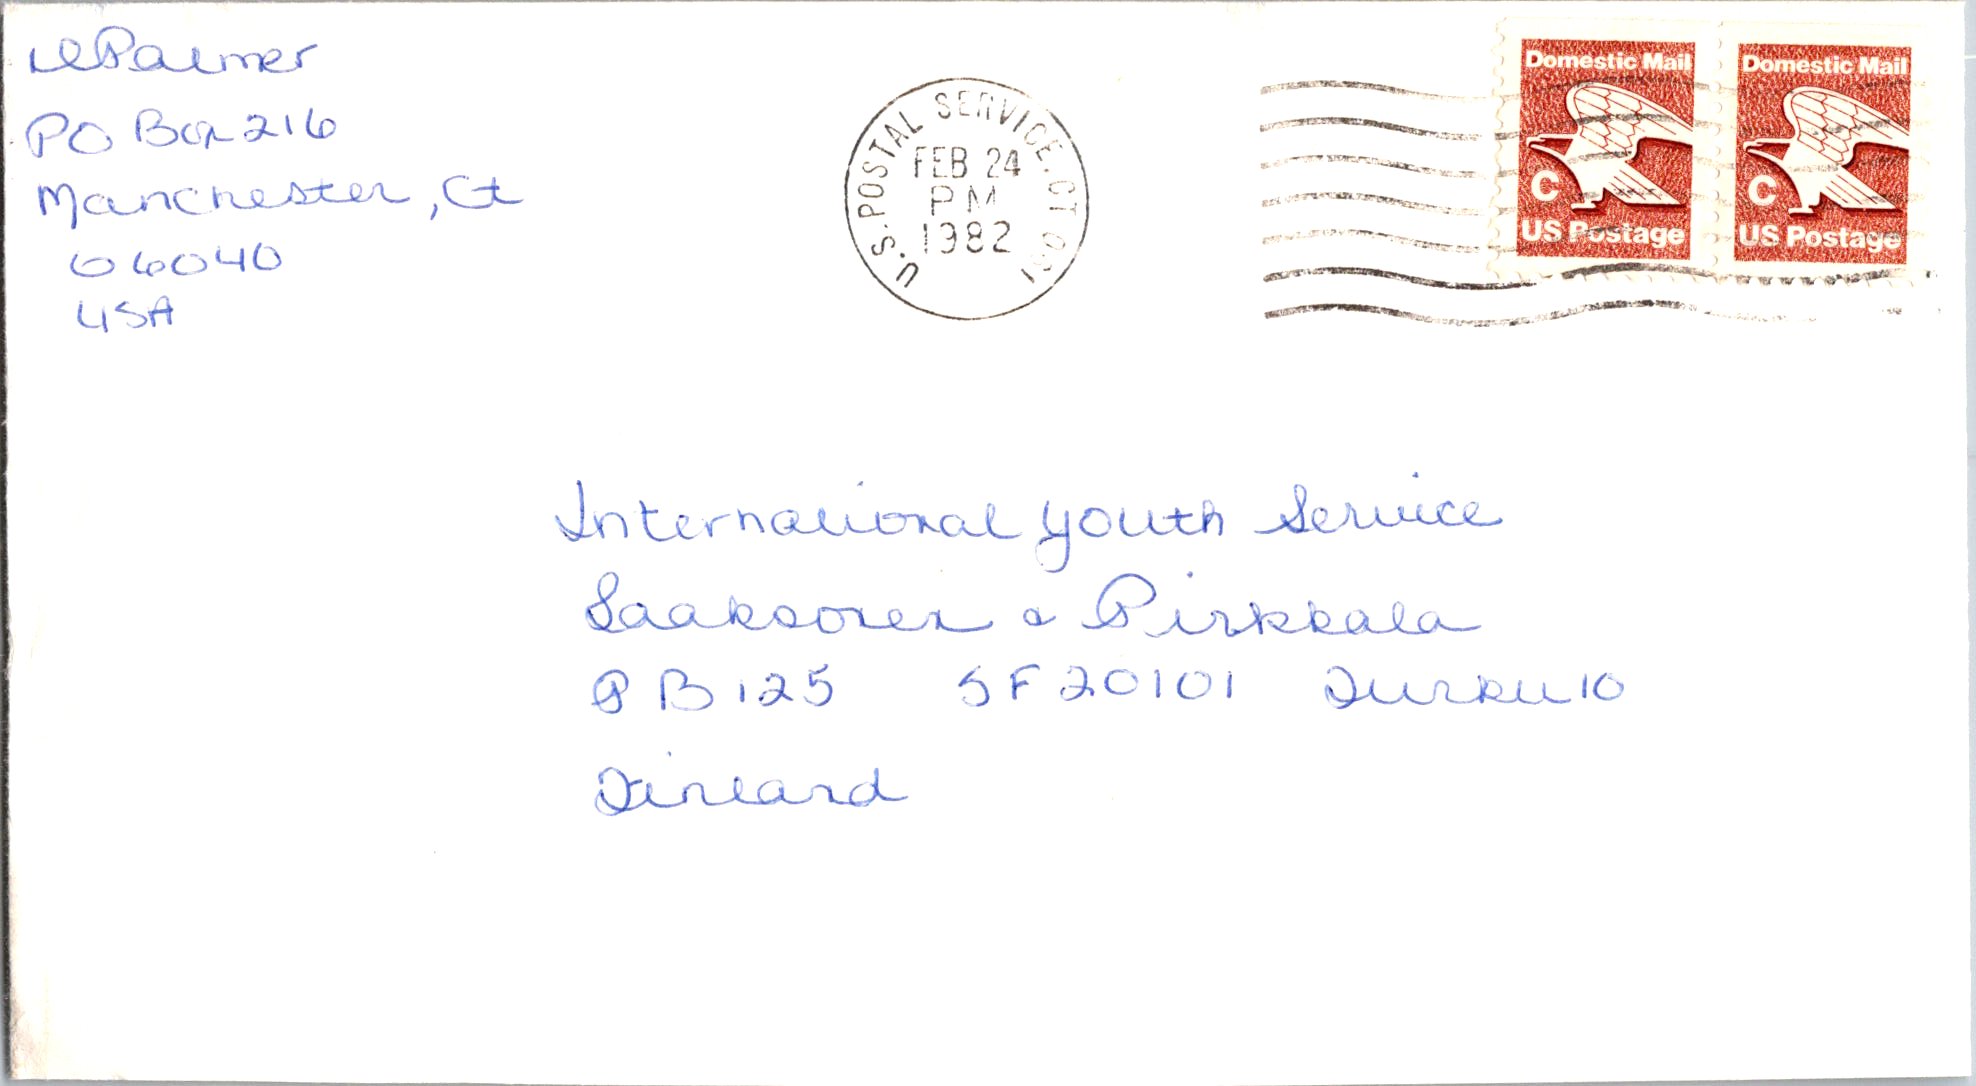 D Palmer
PO Box 216
Manchester, Ct
06040
USA
U.S. POSTAL SERVICE. CT 061
FEB 24
PM
1982
Domestic Mail
C
US Postage
Domestic Mail
C
US Postage
International Youth Service
Saaksonen & Pirkkala
PB 125 SF 20101 Turku 10
Finland